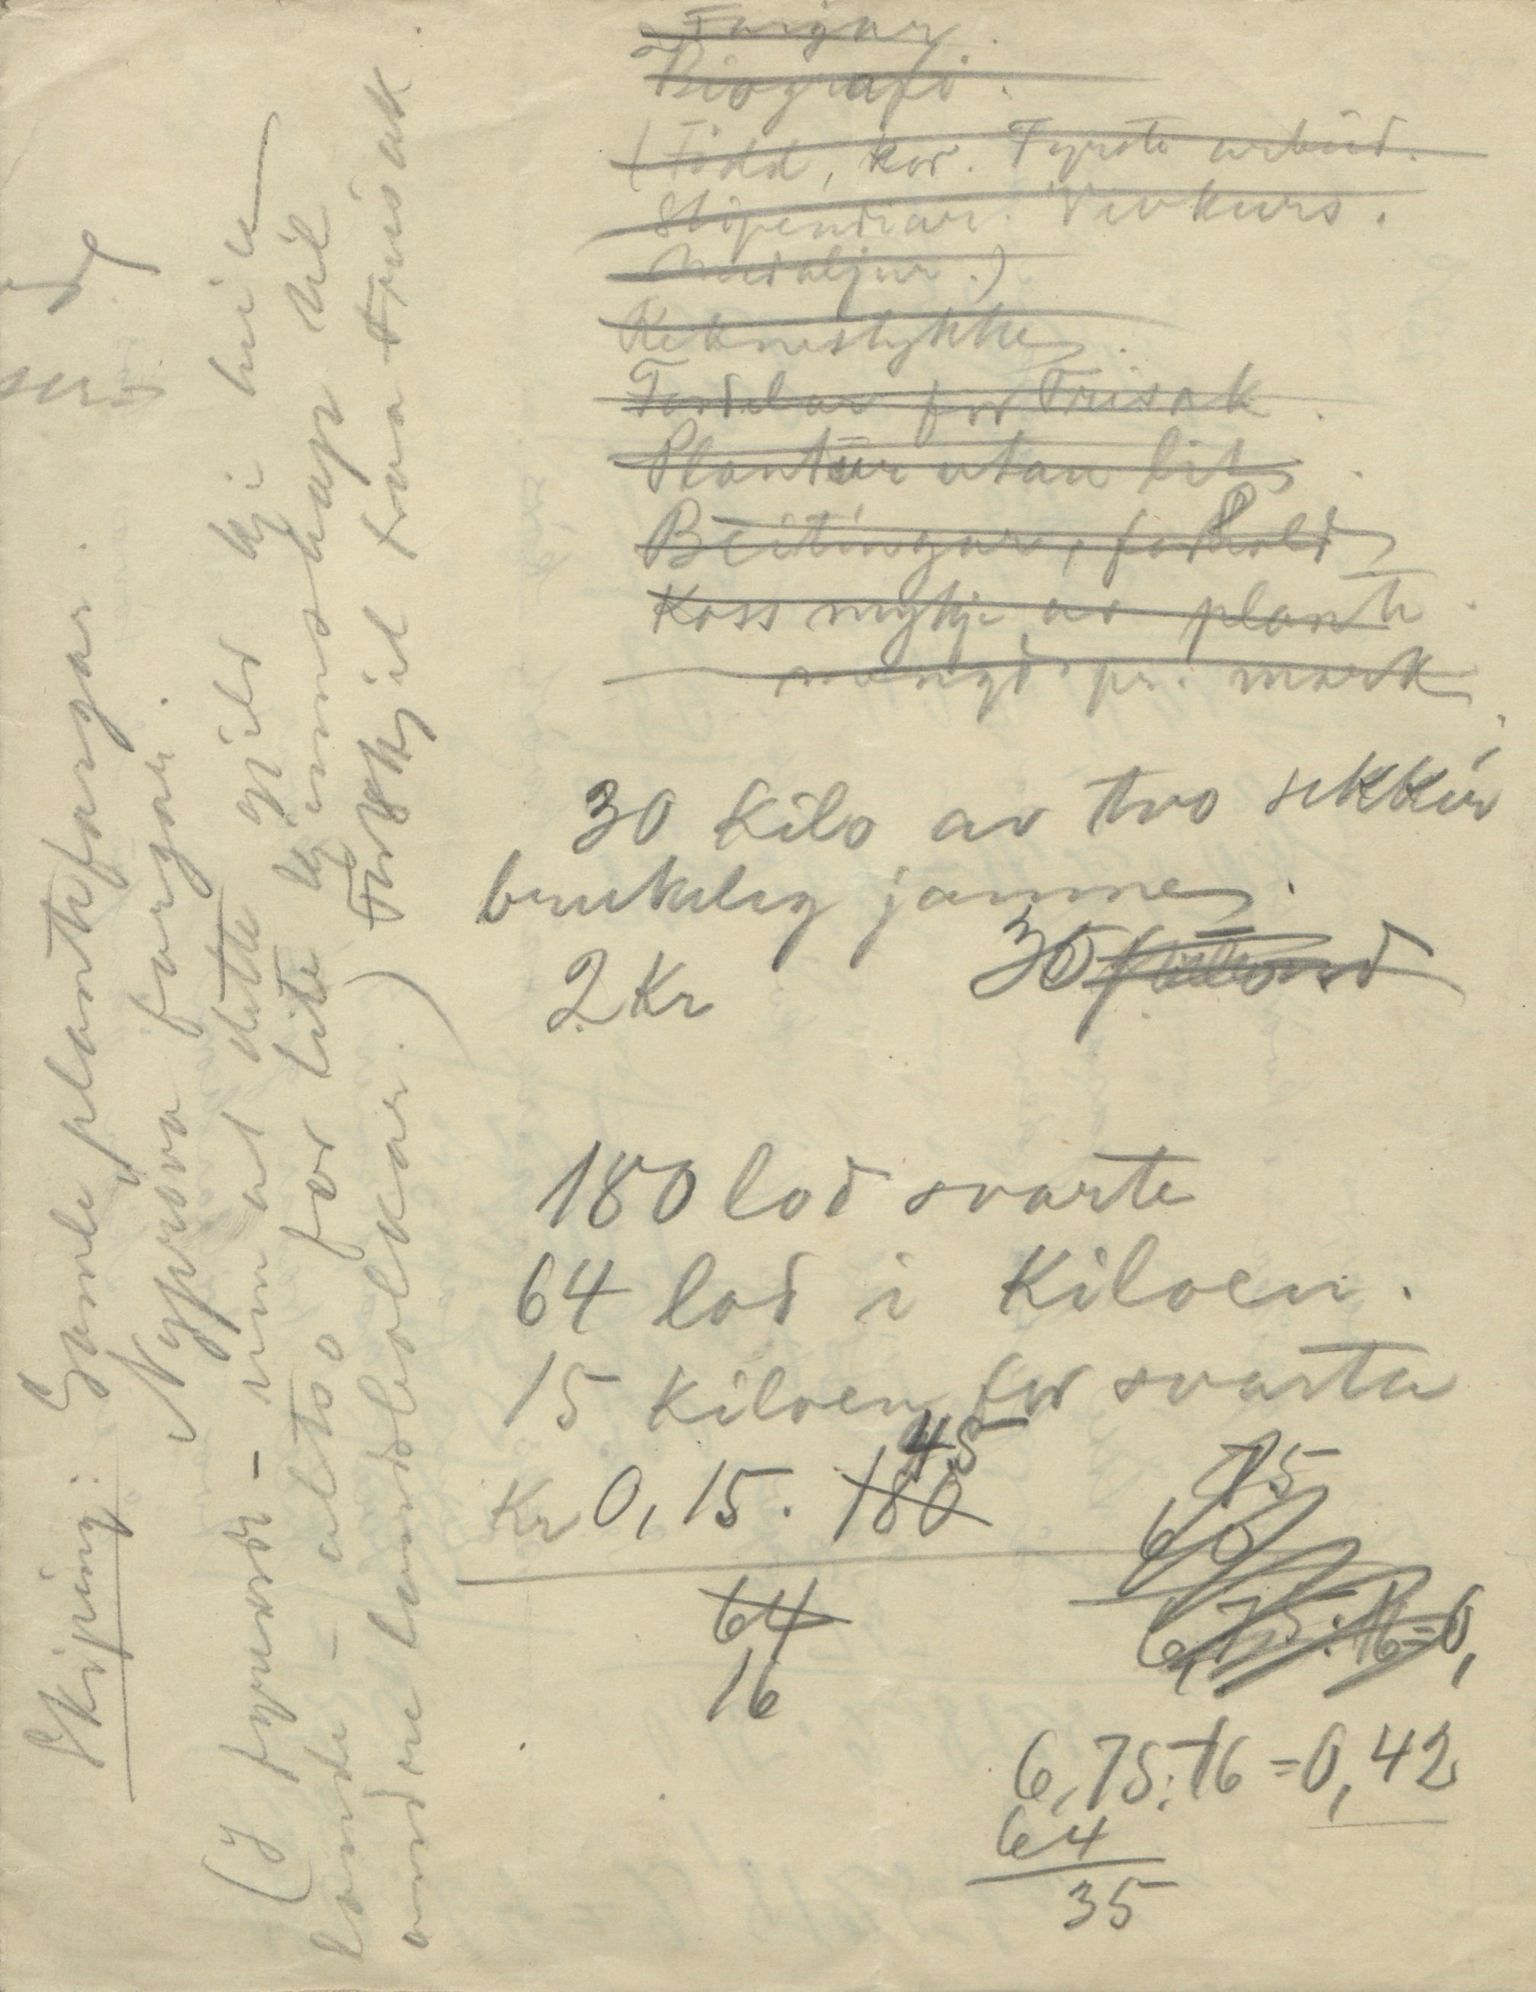 Fargar.
Biografi.
(Född, kor. Fyrste arbeid.
Stipendiar. Vevkurs.
Medaljur.)
Reknestykke.
Fordelar for Trisak.
Plantur utan lit.
Beitingar, forhold
Koss mykje av plante
mengd pr. mark
30 Kilo av tvo sekkir
brukeleg jamne.
2 Kr 30
180 lod svarte
64 lod i Kiloen.
15 Kiloen for svarta
45
Kr 0,15 . 180
64
16
75
60
6,75 : 16 = 0,
6,75 : 16 = 0,42
64
35
Skiping: Gamle plantefargar.
Nyprøva fargar.
(I fyrerord - um at dette gjeld kje heile
landet - altso for lite kjennskap til
andre landsbolkar.) Forskjel fraa trisak.